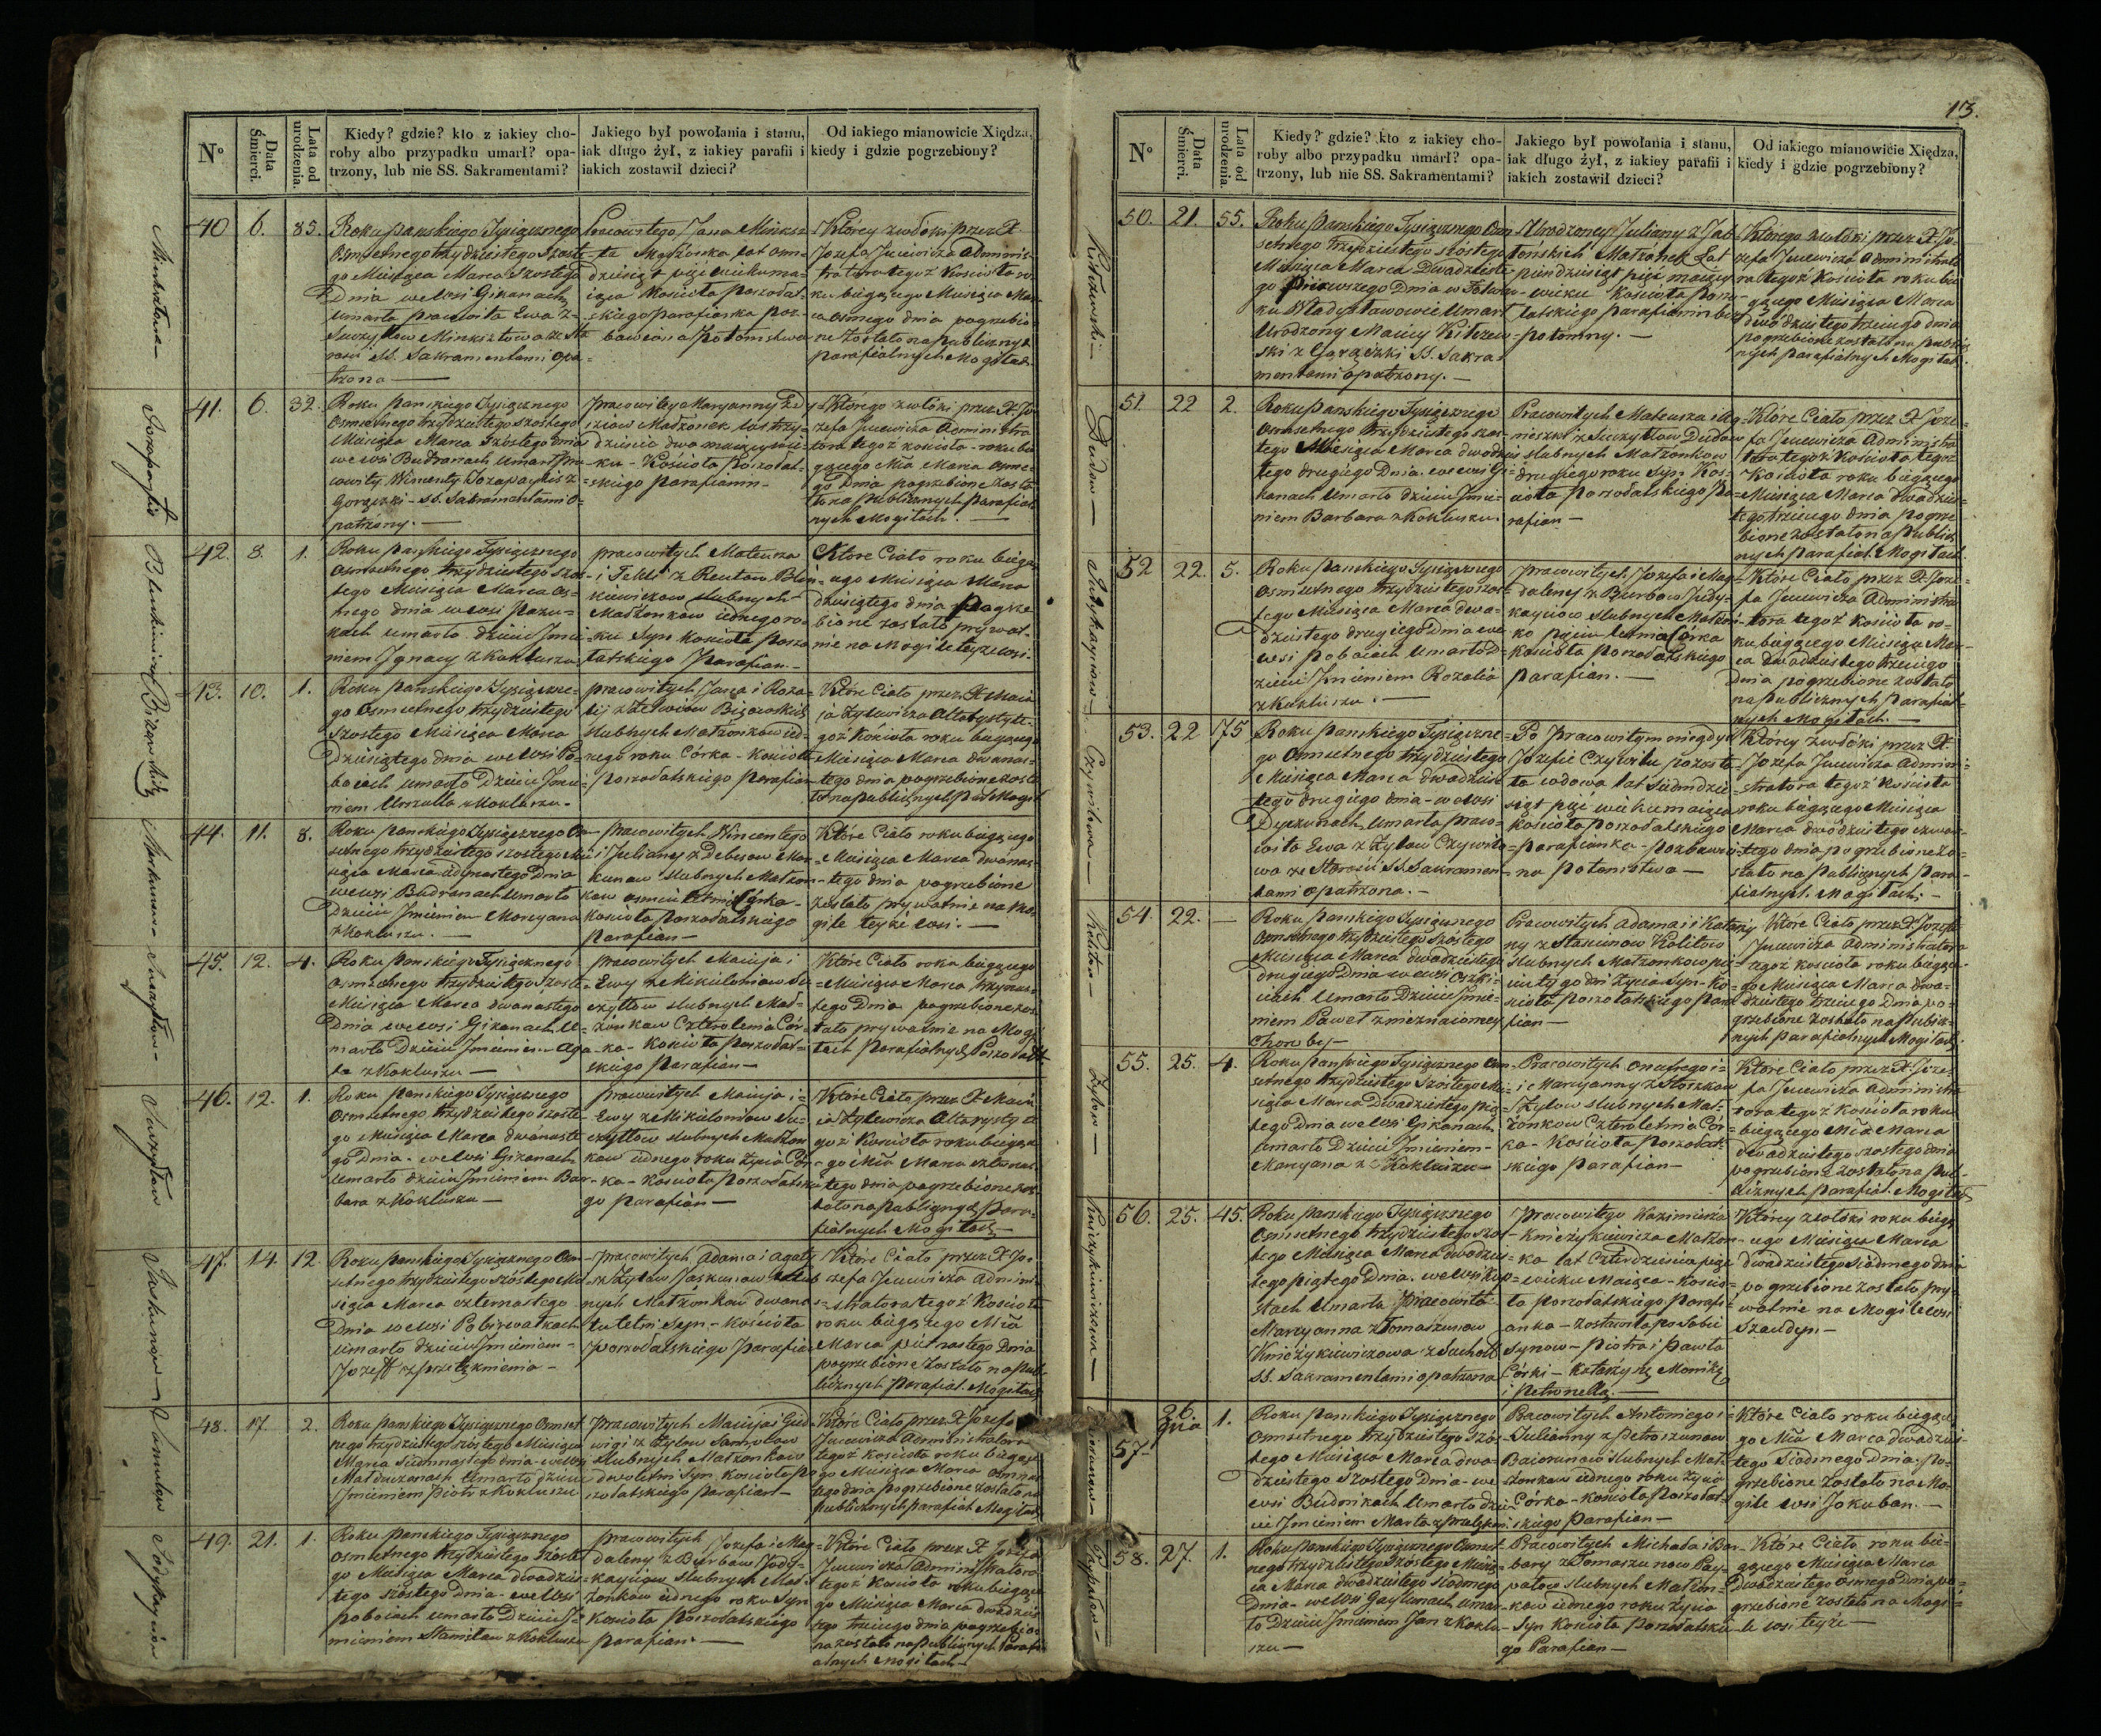 N°
Data Śmierci.
Lata od urodzenia.
Kiedy? gdzie? kto z iakiey cho-
roby albo przypadku umarł? opa-
trzony, lub nie SS. Sakramentami?
Jakiego był powołania i stanu,
iak długo żył, z iakiey parafii i
iakich zostawił dzieci?
Od iakiego mianowicie Xiędza,
kiedy i gdzie pogrzebiony?
40
6.
85.
Roku pańskiego Tysiącznego
Osmsetnego trzydziestego Szoste-
go Miesiąca Marca Szostego
Dnia we wsi Gikanach
umarła pracowita Ewa z
Suczyłow
rości i SS. Sakramentami opa-
trzona —
Pracowitego Jana
-ta Małżonka lat osm-
dziesiąt pięć wieku ma-
iąca Kościoła Poszołat-
skiego parafianka poz-
bawiona Potomstwa
Którey zwłoki przez X.
Jozefa Jucewicza Adminis-
tratora tegoż Kościoła ro-
ku bieżącego Miesiąca Mar-
ca osmego dnia pogrzebio-
ne zostało na publicznych
parafialnych Mogiłach
41.
6.
32.
Roku pańskiego Tysiącznego
Osmsetnego trzydziestego szostego
Miesiąca Marca Szostego dnia
we wsi Budranach umarł pra-
cowity Wincenty Jozapaytis z
Gorączki - SS. Sakramentami o-
patrzony. —
pracowitey Maryanny
Małżonek lat trzy-
dzieścia dwa maiący wie-
ku - Kościoła Poszołat-
skiego parafianin -
Którego zwłoki przez X. Jo-
zefa Jucewicza Administra-
tora tegoż kościoła - roku bie-
żącego Mca Marca osme-
go Dnia pogrzebione zosta-
ło na publicznych parafial-
nych Mogiłach. —
42.
8.
1.
Roku pańskiego Tysiącznego
Osmsetnego trzydziestego szos-
tego Miesiąca Marca os-
mego dnia we wsi
umarło dziecie Imie-
niem Ignacy z Kokluszu
pracowitych Mateusza
i Tekli z Reutow
slubnych
Małżonkow iednego ro-
ku Syn Kościoła Poszo-
łatskiego Parafian. —
Ktore Ciało roku bieżą-
cego Miesiąca Marca
dziesiątego dnia pogrze-
bione zostało prywat-
nie na Mogile teyże wsi.
43.
10.
1.
Roku pańskiego Tysiączne-
go Osmsetnego trzydziestego
Szostego Miesiąca Marca
Dziesiątego dnia we wsi Po-
bociach umarło Dziecie Imie-
niem Urszulla z Kokluszu.
pracowitych Jana i Roza-
lij
slubnych Małżonkow ied-
nego roku Córka - Kościoła
Poszołatskiego Parafian
Które Ciało przez X. Macie-
ja Żylewicza Altarystę te-
goż Kościoła roku bieżącego
Miesiąca Marca dwunas-
tego dnia pogrzebione zosta-
ło na publicznych Mogił
44.
11.
8.
Roku pańskiego Tysiącznego Os-
setnego trzydziestego szostego Mie-
siąca Marca iedynastego Dnia
we wsi Budranach umarło
Dziecie Imieniem Maryana
z Kokluszu. —
pracowitych Wincentego
i Julianny z Debesow
slubnych Małżon-
kow osmiu letnia Córka -
Kościoła poszołatskiego
Parafian —
Które Ciało roku bieżącego
Miesiąca Marca dwunas-
tego dnia pogrzebione
zostało prywatnie na Mo-
gile teyże wsi. —
45.
12.
4.
Roku pańskiego Tysiącznego
Osmsetnego trzydziestego szoste-
Miesiąca Marca dwunastego
Dnia we wsi Gikanach U-
marło Dziecie Imieniem Aga-
ta z Kokluszu —
pracowitych Macieja i
Ewy z Mikulonow Su-
czyłow slubnych Mał-
żonkow Cztroletnia Cór-
ka - Kościoła poszołat-
skiego Parafian —
Które Ciało roku bieżącego
Miesiąca Marca trzynas-
tego Dnia pogrzebione zos-
tało prywatnie na Mogi-
łach parafialnych
46.
12.
1.
Roku pańskiego Tysiącznego
Osmsetnego trzydziestego szoste-
go Miesiąca Marca dwunaste-
go Dnia - we wsi Gikanach
umarło dziecie Imieniem Bar-
bara z Kokluszu —
pracowitych Macieja i
Ewy z Mikulonow Su-
czyłow slubnych Małżon-
kow iednego roku życia Cór-
ka - Kościoła Poszołatskie-
go parafian —
Które Ciało przez X. Macie-
ja Żylewicza Altarystę te-
goż Kościoła roku bieżące-
go Mca Marca czternas-
tego dnia pogrzebione zos-
tało na publicznych Para-
fialnych Mogiłach —
47.
14.
12.
Roku pańskiego Tysiącznego Os-
setnego trzydziestego szostego Mie-
siąca Marca czternastego
Dnia we wsi
umarło dziecie Imieniem -
Jozeff z przelęknienia -
pracowitych Adama i Agaty
z Żyłow Jaskunow slub-
nych Małżonkow dwunas-
tu letni Syn - Kościoła
Poszołatskiego Parafian
Które Ciało przez X. Jo-
zefa Jucewicza Admini-
stratora tegoż Kościoła
roku bieżącego Mca
Marca piętnastego Dnia
pogrzebione zostało na pub-
licznych parafial. Mogiłach
48.
17.
2.
Roku Pańskiego Tysiącznego Osmset-
nego trzydziestego szostego Miesiąca
Marca siedmnastego dnia - we wsi
umarło dziecie
Imieniem Piotr z Kokluszu
pracowitych Macieja i Jad-
wigi z Żyłow
slubnych Małżonkow
dwuletni Syn, Kościoła Po-
szołatskiego parafian —
Które Ciało przez X. Jozefa
Jucewicza Administratora
tegoż Kościoła roku bieżące-
go Miesiąca Marca osmnas-
tego dnia pogrzebione zostało na
publicznych parafial. Mogiłach
49.
21.
1.
Roku pańskiego Tysiącznego
Osmsetnego trzydziestego Szoste-
go Miesiąca Marca dwudzies-
tego szostego Dnia - we wsi
pobociach umarło Dziecie I-
mieniem Stanisław z Kokluszu
pracowitych Jozefa i Mag-
daleny z Burbow Jody-
kayciow slubnych Mał-
żonkow iednego roku Syn
Kościoła Poszołatskiego
parafian. —
Które Ciało przez X. Jozefa
Jucewicza Administratora
tegoż Kościoła roku bieżące-
go Miesiąca Marca dwudzies-
tego trzeciego dnia pogrzebio-
na zostało na publicznych Parafi-
alnych Mogiłach —
13.
N°
Data Śmierci.
Lata od urodzenia.
Kiedy? gdzie? kto z iakiey cho-
roby albo przypadku umarł? opa-
trzony, lub nie SS. Sakramentami?
Jakiego był powołania i stanu,
iak długo żył, z iakiey parafii i
iakich zostawił dzieci?
Od iakiego mianowicie Xiędza,
kiedy i gdzie pogrzebiony?
50.
21.
55.
Roku Pańskiego Tysiącznego Osm-
setnego trzydziestego szóstego
Miesiąca Marca Dwudzieste-
go pierwszego Dnia w Folwar-
ku Władysławowie Umarł
Urodzony Maciey
ski z Gorączki SS. Sakra-
mentami opatrzony. —
Urodzoney Julianny z Jab-
łońskich Małżonek Lat
pięndziesiąt pięć maiący
wieku Kościoła Poszo-
łatskiego parafianin bez-
potomny. —
Którego zwłoki przez X. Jo-
zefa Jucewicza Administrato-
ra tegoż Kościoła roku bie-
żącego Miesiąca Marca
dwudziestego trzeciego dnia
pogrzebione zostało na publicz-
nych parafialnych Mogiłach.
51.
22
2.
Roku Pańskiego Tysiącznego
Osmsetnego trzydziestego szos-
tego Miesiąca Marca dwudzies-
tego drugiego Dnia we wsi Gi-
kanach umarło dziecie Imie-
niem Barbara z Kokluszu.
Pracowitych Mateusza i Ag-
nieszki z Suczyłow Dudow
slubnych Małżonkow
drugiego roku Syn Koś-
cioła Poszołatskiego Pa-
rafian —
Które Ciało przez X. Joze-
fa Jucewicza Administra-
tora tegoż Kościoła tegoż
Kościoła roku bieżącego
Miesiąca Marca dwudzies-
tego trzeciego dnia pogrze-
bione zostało na publicz-
nych parafial. Mogiłach.
52
22.
5.
Roku Pańskiego Tysiącznego
Osmsetnego trzydziestego szos-
tego Miesiąca Marca dwu-
dziestego drugiego Dnia we
wsi pobociach umarło D-
ziecie Imieniem Rozalia
z Kokluszu. —
Pracowitych Jozefa i Mag-
daleny z Burbow Jody-
kayciow slubnych Małżon-
ko pięciu letnia Córka
Kościoła poszołatskiego
parafian. —
Które Ciało przez X. Joze-
fa Jucewicza Administra-
tora tegoż Kościoła ro-
ku bieżącego Miesiąca Mar-
ca dwudziestego trzeciego
dnia pogrzebione zostało
na publicznych parafial-
nych Mogiłach. —
53.
22
75
Roku Pańskiego Tysiączne-
go Osmsetnego trzydziestego
Miesiąca Marca dwudzies-
tego drugiego dnia - we wsi
umarła praco-
wita Ewa z Żyłow Czywiło-
wa ze Starości SS. Sakramen-
tami opatrzona. —
Po Pracowitym niegdyś
Jozefie Czywilu pozosta-
ła wdowa lat siedmdzie-
siąt pięć wieku maiąca
Kościoła poszołatskiego
parafianka - pozbawio-
na potomstwa —
Którey zwłoki przez X.
Jozefa Jucewicza Admini-
stratora tegoż Kościoła
roku bieżącego Miesiąca
Marca dwudziestego czwar-
tego dnia pogrzebione zo-
stało na publicznych para-
fialnych Mogiłach. —
54.
22.
—
Roku Pańskiego Tysiącznego
Osmsetnego trzydziestego szóstego
Miesiąca Marca dwudziestego
drugiego Dnia we wsi
umarło Dziecie Imie-
niem Paweł z nieznaiomey
choroby —
Pracowitych Adama i Katarzy-
ny z Stasiunow
slubnych Małżonkow pię-
ciu tygodni życia Syn - Ko-
ścioła poszołatskiego para-
fian —
Które Ciało przez X. Jozefa
Jucewicza Administratora
tegoż Kościoła roku bieżące-
go Miesiąca Marca dwu-
dziestego trzeciego Dnia po-
grzebione zostało na publicz-
nych parafialnych Mogiłach
55.
25.
4.
Roku Pańskiego Tysiącznego Osm-
setnego trzydziestego Szostego Mie-
siąca Marca Dwudziestego pią-
tego Dnia we wsi Gikanach
umarło Dziecie Imieniem
Maryana z Kokluszu —
Pracowitych Onufrego i
Maryanny z
Żyłow slubnych Mał-
żonkow Cztroletnia Cór-
ka - Kościoła Poszołat-
skiego parafian —
Które Ciało przez X. Joze-
fa Jucewicza Administra-
tora tegoż Kościoła roku
bieżącego Mca Marca
dwudziestego szostego dnia
pogrzebione zostało na pub-
licznych parafial. Mogiłach
56.
25.
45.
Roku Pańskiego Tysiącznego
Osmsetnego trzydziestego szos-
tego Miesiąca Marca dwudzies-
tego piątego Dnia. we wsi
umarła Pracowita
Maryanna z Tomaszunow
z Suchot
SS. Sakramentami opatrzona
Pracowitego Kazimierza
Małżon-
ka lat czterdzieścia pięć
wieku Maiąca - Kościo-
ła poszołatskiego parafi-
anka - zostawiła po sobie
Synow - Piotra i Pawła
Córki - Katarzynę Monikę
i Petronellę. —
Którey zwłoki roku bieżą-
cego Miesiąca Marca
dwudziestego siódmego dnia
pogrzebione zostało pry-
watnie na Mogile wsi
Szawdyn —
57
26.
dnia
1.
Roku Pańskiego Tysiącznego
Osmsetnego trzydziestego Szos-
tego Miesiąca Marca dwu-
dziestego Szostego Dnia - we
wsi Budrikach umarło dzie-
cie Imieniem Marta z przelękn.
Pracowitych Antoniego i
Julianny z Petroszunow
slubnych Mał-
żonkow iednego roku życia
Córka - Kościoła Poszołat-
skiego Parafian —
Które Ciało roku bieżące-
go Mca Marca dwudzies-
tego siódmego Dnia po-
grzebione zostało na Mo-
gile wsi Jokuban. —
58.
27.
1.
Roku Pańskiego Tysiącznego Osmset-
nego trzydziestego szóstego Miesią-
ca Marca dwudziestego siódmego
Dnia - we wsi umar-
ło Dziecie Imieniem Jan z Koklu-
szu —
Pracowitych Michała i Bar-
bary z Tomaszunow
slubnych Małżon-
kow iednego roku życia
Syn Kościoła Poszołatskie-
go Parafian —
Które Ciało roku bie-
żącego Miesiąca Marca
dwudziestego osmego Dnia po-
grzebione zostało na Mogi-
le wsi teyże —